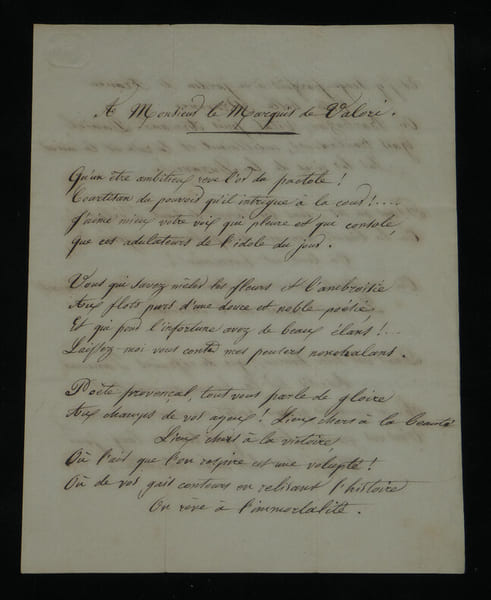 A Monsieur le Marquis de Valori.
Qu'un être ambitieux rêve l'or du pactole !
Courtisan du pouvoir qu'il intrigue à la cour !....
J'aime mieux votre voix qui pleure et qui console,
que ces adulateurs de l'idole du jour.
Vous qui savez mêler les fleurs et l'ambroisie
Aux flots purs d'une douce et noble poésie,
Et qui pour l'infortune avez de beaux élans !...
Laissez moi vous conter mes pensers nonchalans.
Poëte provençal, tout vous parle de gloire
Aux champs de vos ayeux ! Lieux chers à la beauté
Lieux chers à la victoire,
Où l'air que l'on respire est une volupté !
Où de vos gais conteurs en relisant l'histoire
On rêve à l'immortalité.